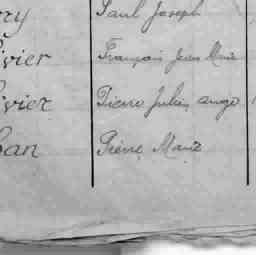 rry Paul Joseph
ivier François Jean Marie
ivier Pierre Julien ange
san Pierre Marie